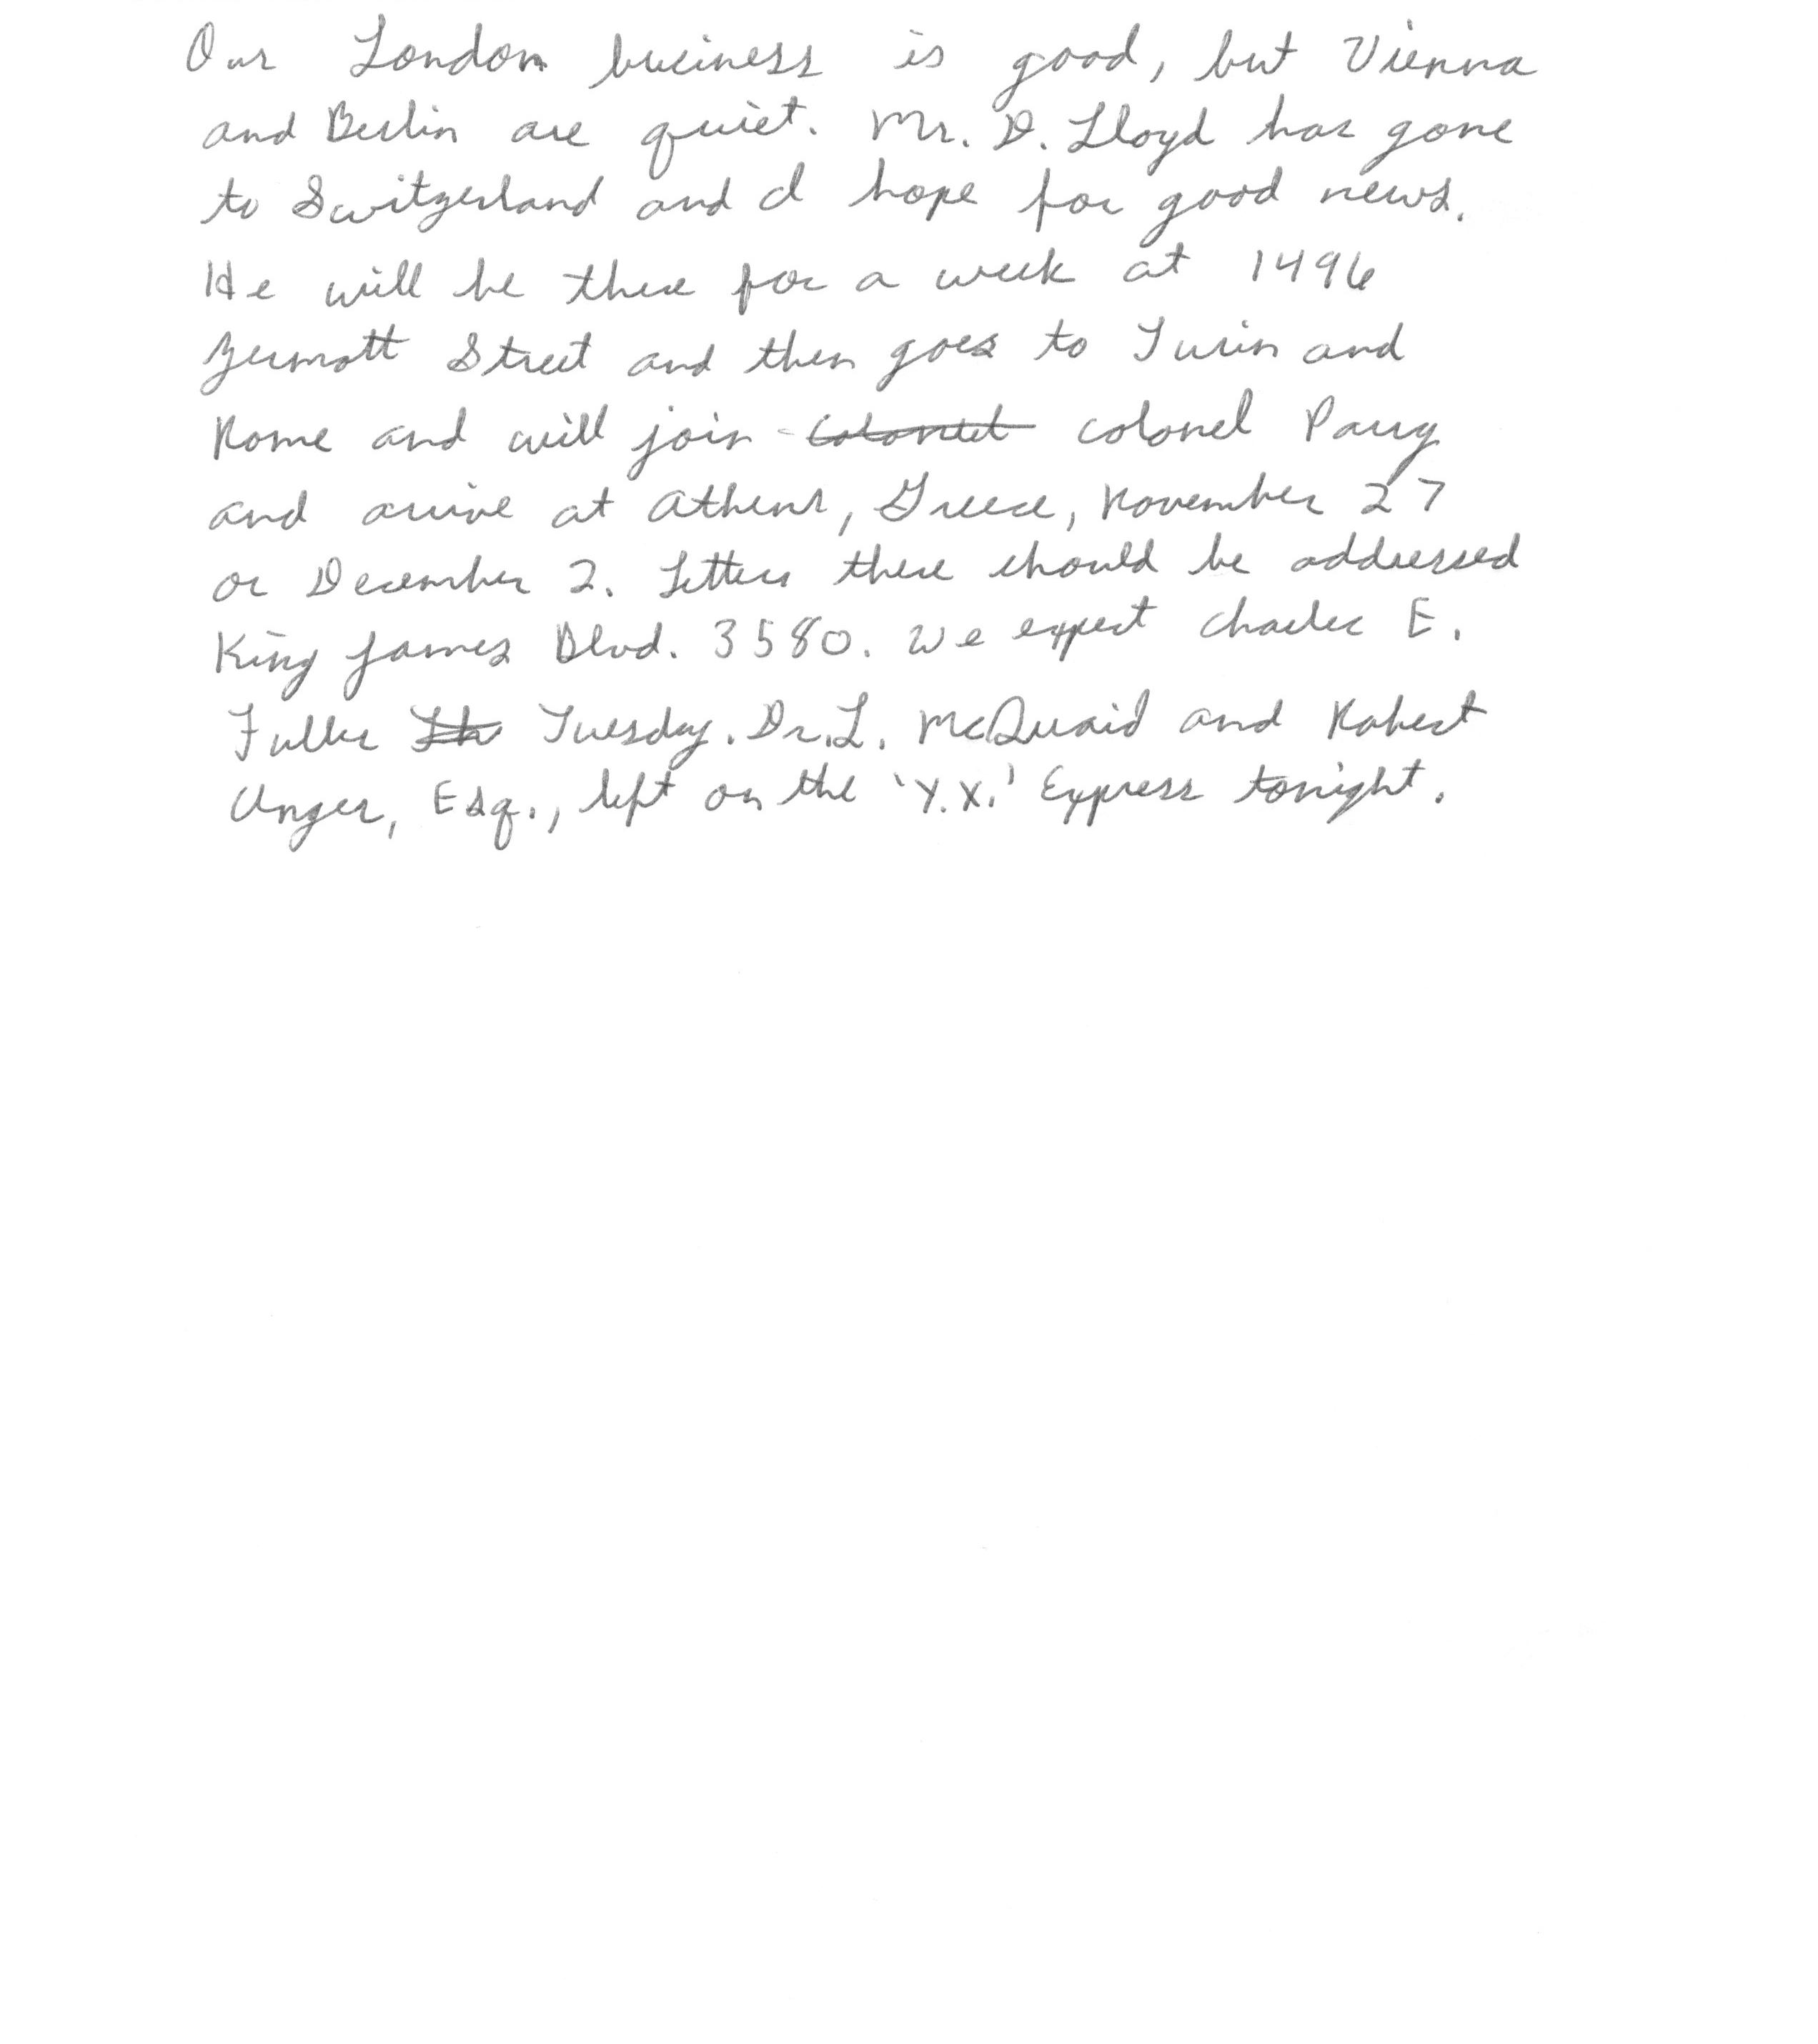 Our London business is good, but Vienna
and Berlin are quiet. Mr. D. Lloyd has gone
to Switzerland and I hope for good news.
He will be there for a week at 1496
Zermott Street and then goes to Turin and
Rome and will join colonel Parry
and arrive at Athens, Greece, November 27
or December 2. Letters there should be addressed
King James Blvd. 3580. We expect Charles E.
Fuller Tuesday. Dr. L. McQuaid and Robert
Unger, Esq., left on the 'Y.X.' Express tonight.